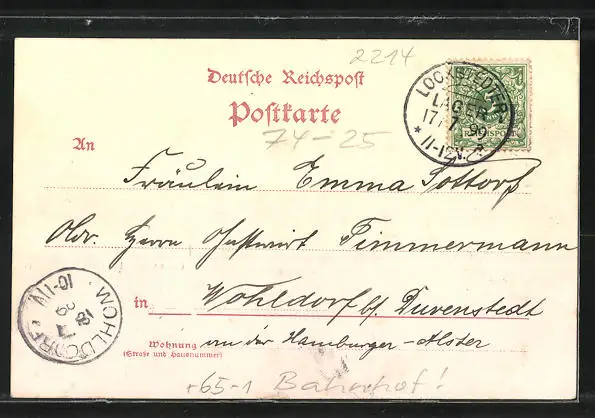 2214
Deutsche Reichspost
Postkarte
LOCKSTEDTER
LAGER
17/7 99
* 11-12V.
REICHSPOST
74-25
An
Fräulein Emma Sottorf
Adr. Herrn Gastwirt Timmermann
in Wohldorf b/ Duvenstedt
WOHLDORF
18/7 99
10-11V
Wohnung an der Hamburger-Alster
(Straße und Hausnummer)
65-1 Bahnhof!